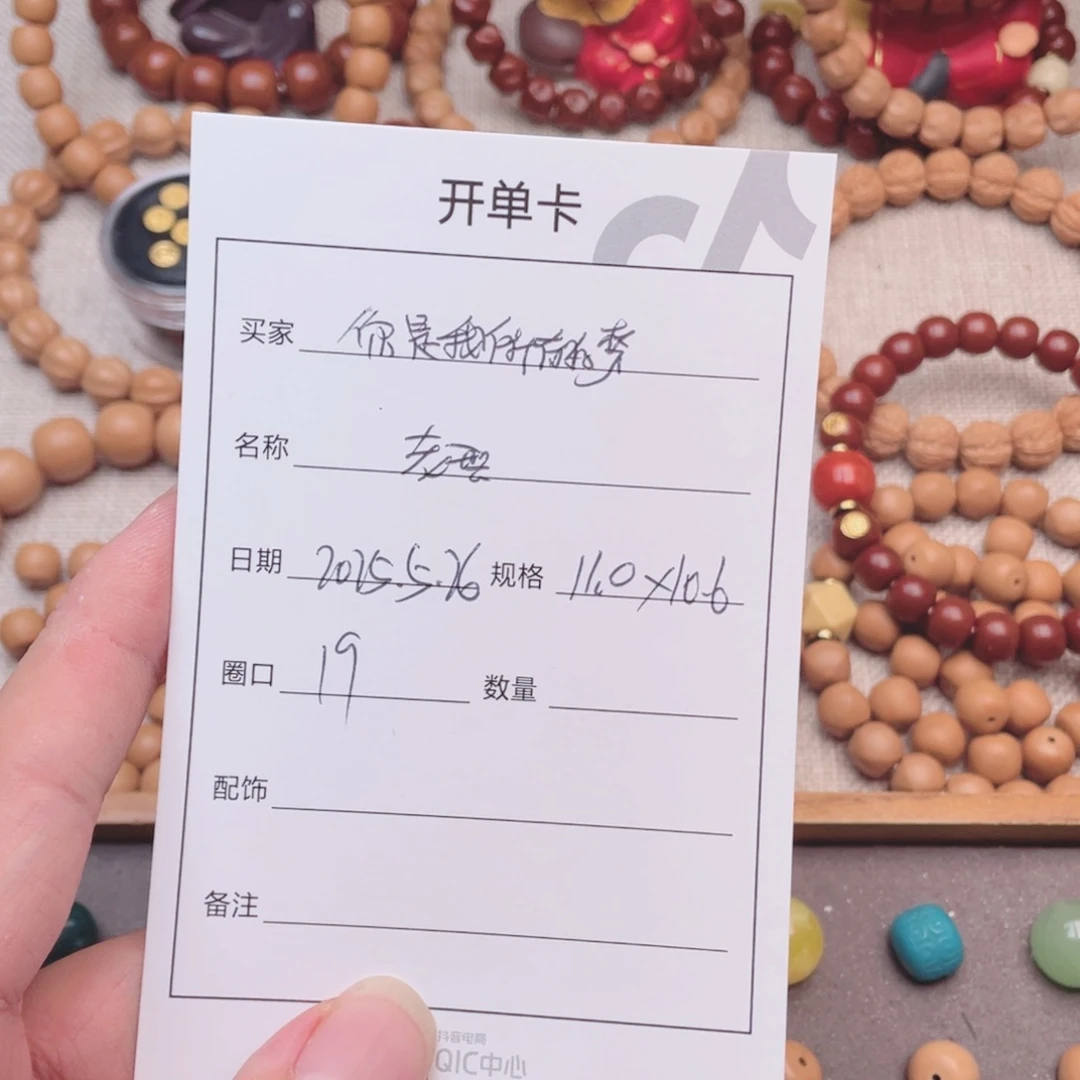 开单卡
买家 你是我所有的梦
名称
日期 2025.5.26 规格 11.0×10.6
圈口 19 数量
配饰
备注
抖音电商
QIC中心